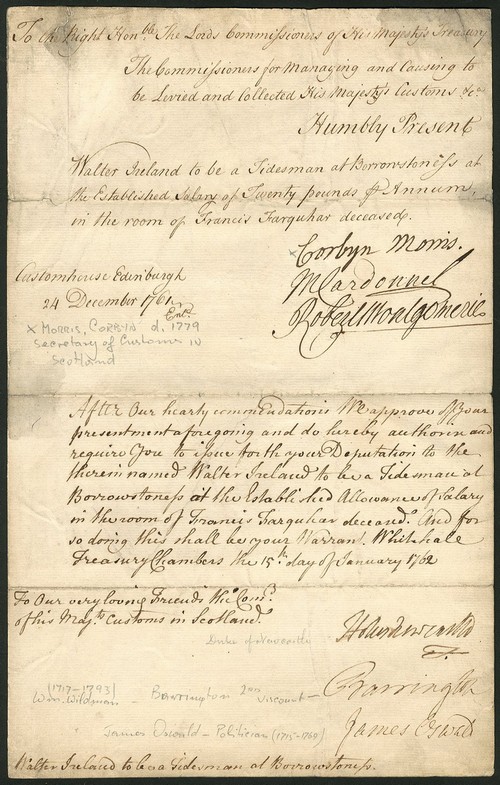 To the Right Honble The Lords Commissioners of His Majestys Treasury
The Commissioners for Managing and Causing to
be Levied and Collected His Majestys Customs &ca
Humbly Present
Walter Ireland to be a Tidesman at Borrowstoness at
the Established Salary of Twenty pounds P Annum,
in the room of Francis Farquhar deceased.
x Corbyn Morris.
MCardonnel
Robert Montgomerie
Customhouse Edinburgh
24 December 1761
Entd
x MORRIS, CORBIN d. 1779
Secretary of Customs in
Scotland
After Our hearty commendations We approve of Your
presentment aforegoing and do hereby authorize and
require You to issue forth your Deputation to the
therein named Walter Ireland to be a Tidesman at
Borrowstoness at the Established Allowance of Salary
in the room of Francis Farquhar deceased. And for
so doing this shall be your Warrant. Whitehale
Treasury Chambers the 15th day of January 1762
To Our very loving Friends the Comrs
of his Majts Customs in Scotland.
Duke of Newcastle
Holles Newcastle
(1717-1793)
Wm. Wildman - Barrington 2nd Viscount -
Barrington
James Oswald - Politician (1715-1769)
James Oswald
Walter Ireland to be a Tidesman at Borrowstoness.